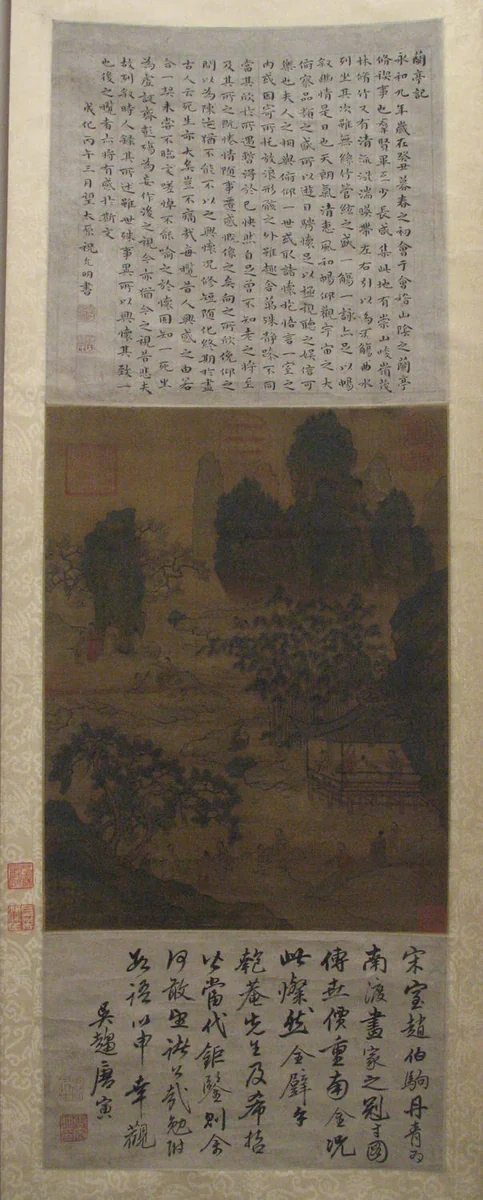 蘭亭記
永和九年歲在癸丑暮春之初會于會稽山陰之蘭亭
脩禊事也羣賢畢至少長咸集此地有崇山峻嶺茂
林脩竹又有清流激湍暎帶左右引以為流觴曲水
列坐其次雖無絲竹管絃之盛一觴一詠亦足以暢
叙幽情是日也天朗氣清惠風和暢仰觀宇宙之大
俯察品類之盛所以遊目騁懷足以極視聽之娛信可
樂也夫人之相與俯仰一世或取諸懷抱悟言一室之
內或因寄所託放浪形骸之外雖趣舍萬殊靜躁不同
當其欣於所遇暫得於己快然自足曾不知老之將至
及其所之既惓情隨事遷感慨係之矣向之所欣俛仰之
間以為陳迹猶不能不以之興懷況脩短隨化終期於盡
古人云死生亦大矣豈不痛哉每攬昔人興感之由若
合一契未嘗不臨文嗟悼不能喻之於懷固知一死生
為虛誕齊彭殤為妄作後之視今亦猶今之視昔悲夫
故列叙時人錄其所述雖世殊事異所以興懷其致一
也後之攬者亦將有感於斯文
成化丙午三月望太原祝允明書
宋室趙伯駒丹青為
南渡畫家之冠寸圖
傳世價重南金况
此燦然全璧乎
匏菴先生及希哲
以當代鉅鑒則余
何敢望諸公哉勉附
数語以申幸觀
吳趨唐寅